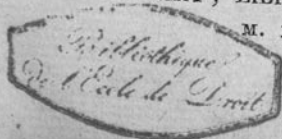 M.
Bibliothèque
de l'Ecole de Droit